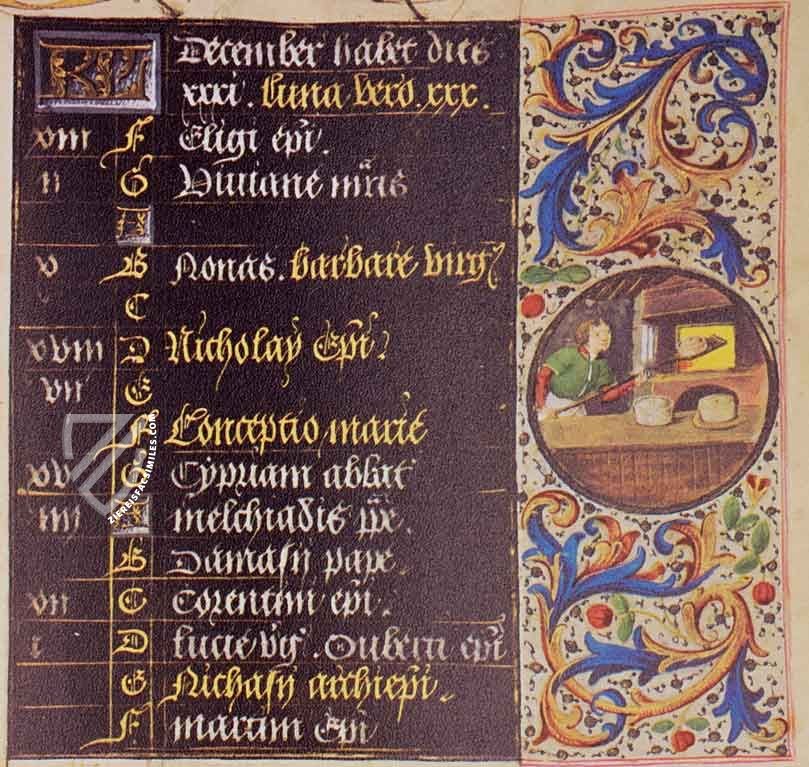 KL December habet dies
xxxi. Luna vero. xxx.
xviii F Eligi epi.
ii G Viviane mris
A
v B Nonas. barbare virg
C
xviii D Nicholay Epi.
vii E
F Conceptio marie
xv G Cypriani abbat
iiii A melchiadis ppe.
B Damasy pape.
vii C Corentini epi.
i D lucie vgs. Auberti epi
E Nichasy archiepi.
F martini Epi
ZIEREISFACSIMILES.COM